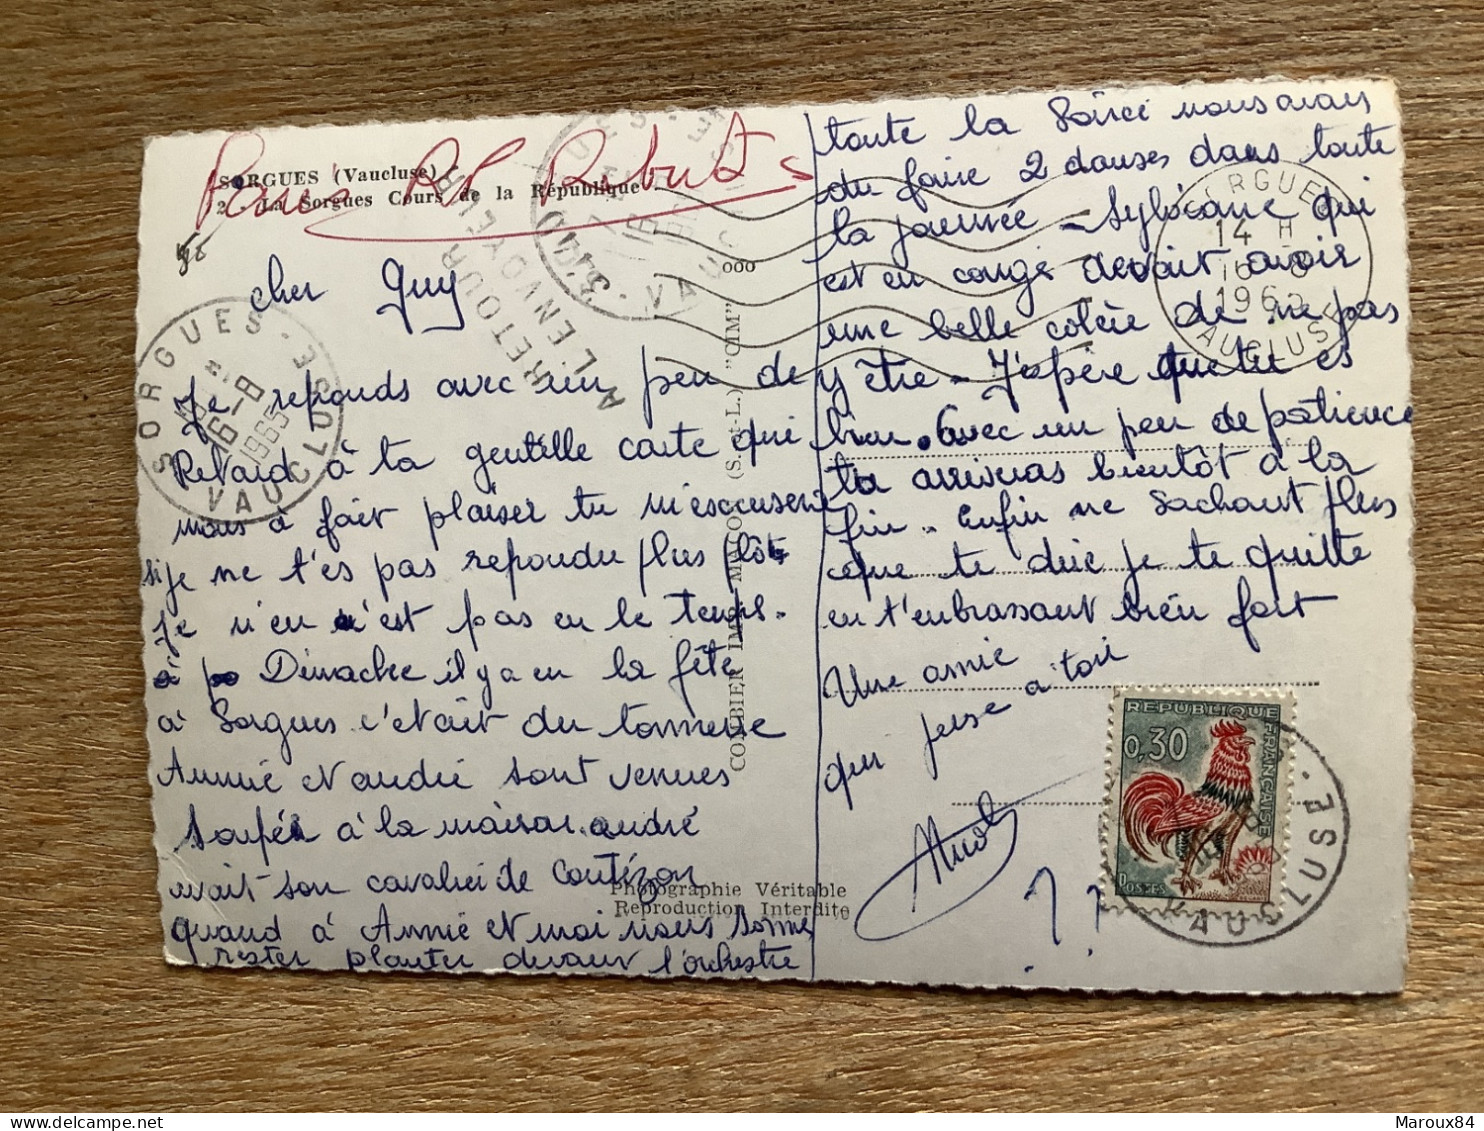 SORGUES (Vaucluse)
2. La Sorgues Cours de la République
Rebuts
RETOUR
A L'ENVOYEUR
000
SORGUES
VAUCLUSE
16-8
1965
SORGUES
14 H
16-8
1965
VAUCLUSE
VAUCLUSE
cher Guy
Je reponds avec un peu de
Retard à ta gentille carte qui
nous à fait plaiser tu m'escuseré
si je ne t'es pas repondu plus plôt
je n'en n'est pas eu le temps.
à Dimache il y a eu la fête
à Sorgues c'etait du tonnerre
Annie et andré sont venues
soupér à la maison. andré
avait son cavalier de
quand à Annie et moi nous somme
rester planter devant l'orchestre
toute la Soirée nous avons
du faire 2 danses dans toute
la journée - Sylviane qui
est en congé devait avoir
une belle colère de ne pas
y être - J'espère que tu es
bien. avec un peu de patience
tu arriveras bientôt à la
fin. Enfin ne sachant plus
que te dire je te quitte
en t'enbrassant bien fort
Une amie
qui pense a toi
? ?
COMBIER IMP. MACON (S.-et-L.) "CIM"
Photographie Véritable
Reproduction Interdite
REPUBLIQUE FRANÇAISE
0,30
POSTES
Maroux84